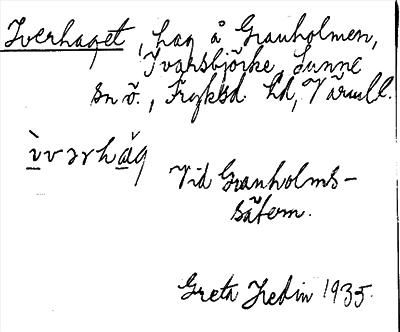 Iverhaget, hag å Granholmen,
Ivarsbjörke, Sunne
sn ö., Fryksd. hd, Värml.
ı̀vərhȧg
Vid Granholms-
sätern.
Greta Hedin 1935.